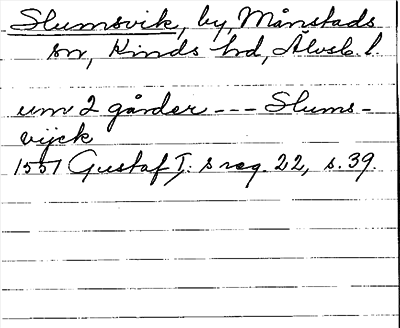 Slumsvik, by, Månstads
sn, Kinds hd, Älvsb. l.
um 2 gårder --- Slums-
vijck
1557 Gustaf I:s reg. 22, s. 39.